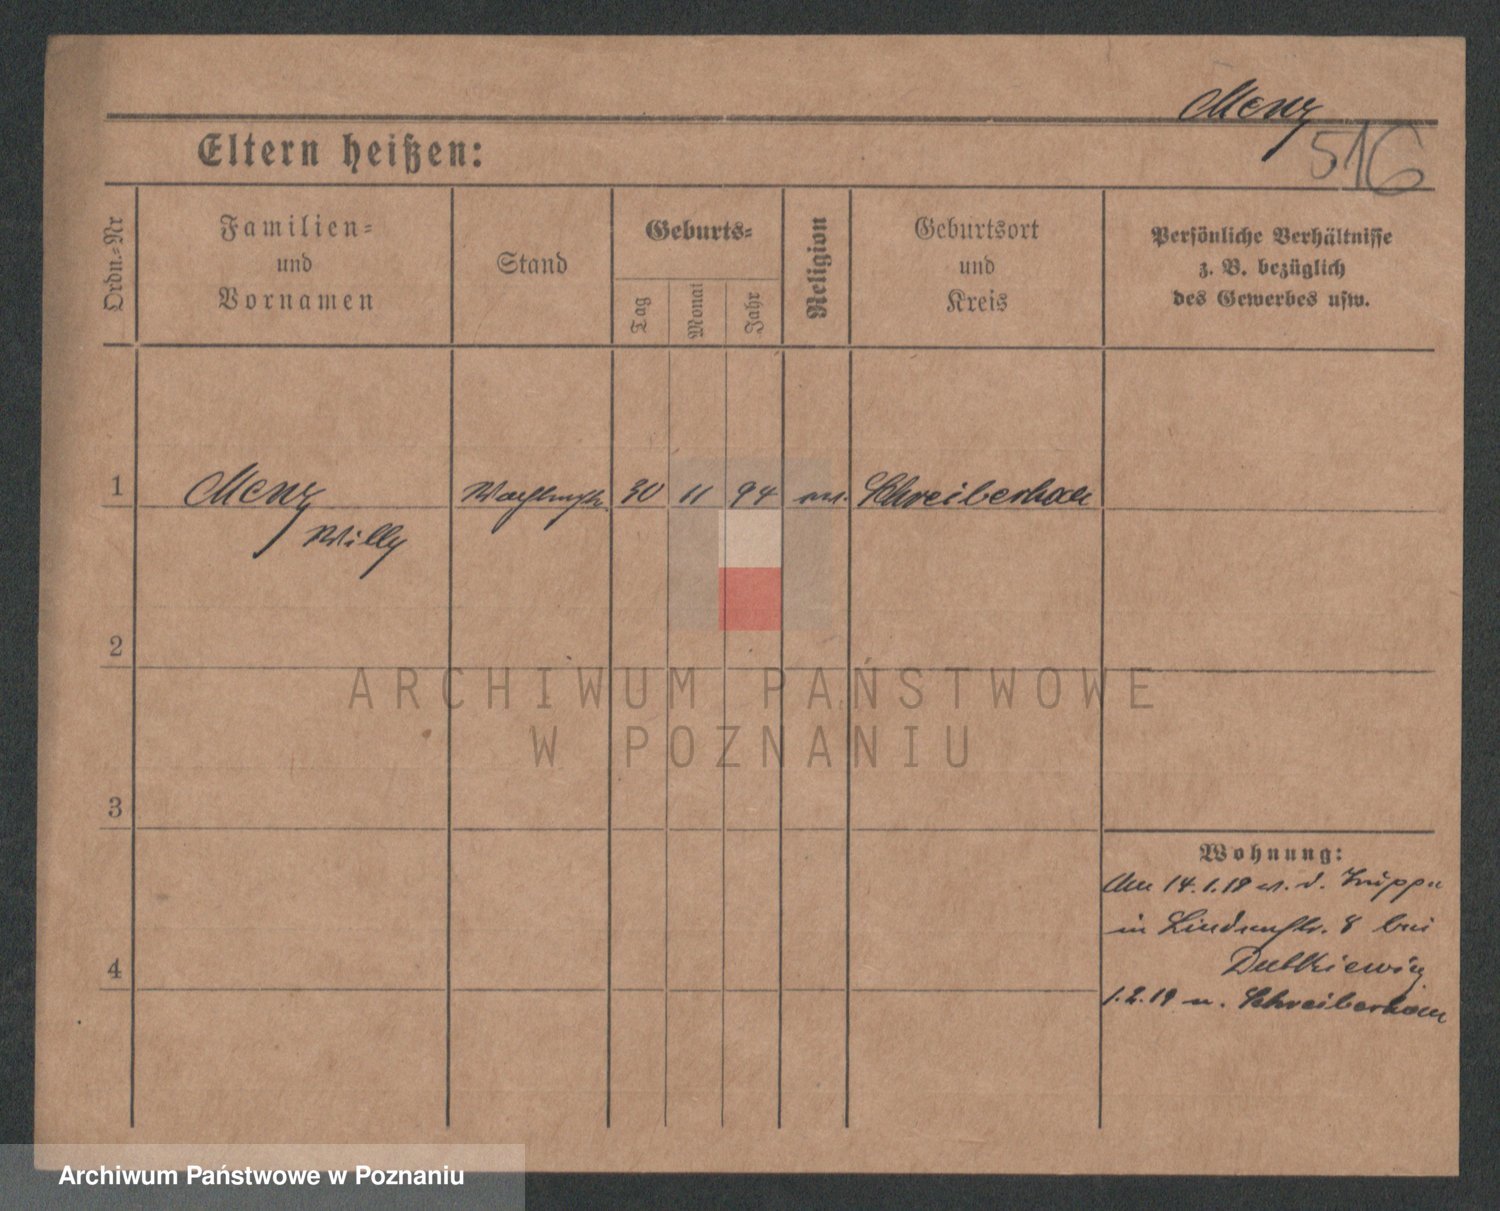 Menz
516
Eltern heißen:
Ordn.-Nr
Familien-
und
Vornamen
Stand
Geburts-
Tag
Monat
Jahr
Religion
Geburtsort
und
Kreis
Persönliche Verhältnisse
z. B. bezüglich
des Gewerbes usw.
1 Menz 30 11 94 Schreiberhau
Willy
2
ARCHIWUM PAŃSTWOWE
W POZNANIU
3
Wohnung:
14.1.19 v. d. Truppe
in Lindenstr. 8 bei
4
1.2.19 n. Schreiberhau
Archiwum Państwowe w Poznaniu